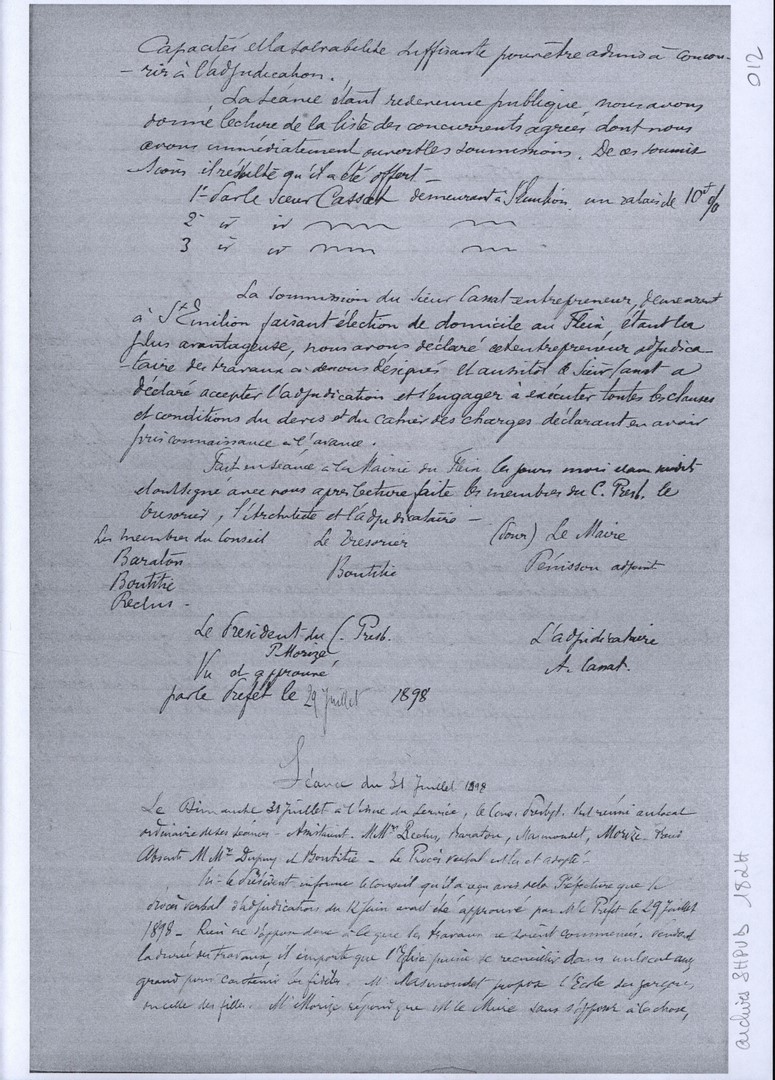 Capacités et la solvabilité suffisante pour être admis à concou-
-rir à l'adjudication.
La séance étant redevenue publique nous avons
donné lecture de la liste des concurrents agréés dont nous
avons immédiatement ouvert les soumissions. De ces soumis
sions il résulte qu'il a été offert
1º Par le Sieur Cassat demeurant à St Emilion un rabais de 10 %
2 id id
3 id id
La soumission du Sieur Cassat entrepreneur, demeurant
à St Emilion faisant élection de domicile au Fleix, étant la
plus avantageuse, nous avons déclaré cet entrepreneur adjudica-
-taire des travaux ci-dessus désignés et aussitôt le Sieur Cassat a
déclaré accepter l'adjudication et s'engager à exécuter toutes les clauses
et conditions du devis et du cahier des charges déclarant en avoir
pris connaissance à l'avance.
Fait en séance à la Mairie du Fleix les jours mois et an susdits
et ont signé avec nous après lecture faite les membres du C. Presb. le
trésorier, l'Architecte et l'adjudicataire -
Les membres du Conseil Le Trésorier (Pour) Le Maire
Baraton
Boutitié Boutitié Pénisson adjoint
Reclus -
Le Président du C. Presb. L'adjudicataire
P. Morize A. Cassat.
Vu et approuvé
par le Préfet le 29 Juillet 1898
Séance du 31 Juillet 1898
Le Dimanche 31 juillet à l'issue du service, le Cons. Presbyt. s'est réuni au local
ordinaire de ses séances - Assistaient M.Mrs Reclus, Baraton, Masmondet, Morize
Absents M Mrs Dupuy et Boutitié - Le Procès verbal est lu et adopté -
M. le Président informe le Conseil qu'il a reçu avis de la Préfecture que le
procès verbal d'adjudication du 12 Juin avait été approuvé par M. le Préfet le 29 Juillet
1898 - Rien ne s'oppose donc à ce que les travaux ne soient commencés. Pendant
la durée des travaux il importe que l'Eglise puisse se recueillir dans un local assez
grand pour contenir les fidèles. Mr Masmondet propose l'Ecole des garçons
ou celle des filles. Mr Morize répond que M. le Maire sans s'opposer à la chose,
012
archives SHPVD 182H